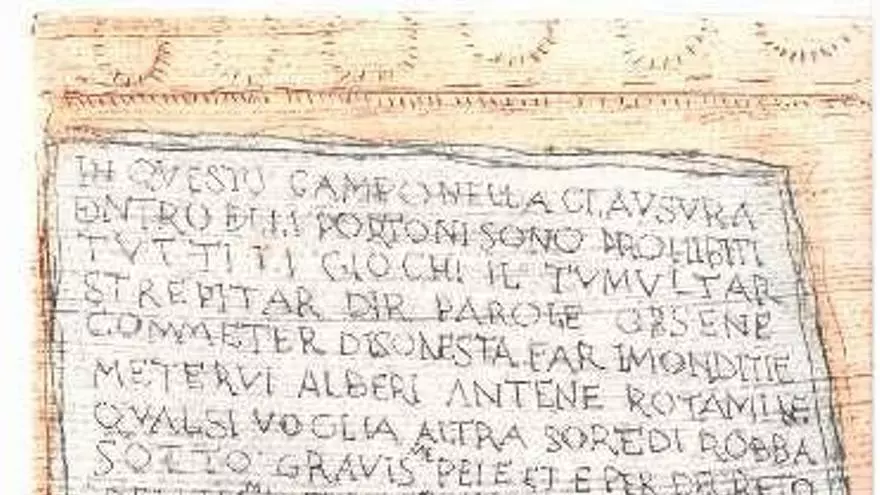 IN QVESTO CAMPO NELLA CLAVSVRA
DNTRO DELLI PORTONI SONO PROHIBITI
TVTTI LI GIOCHI IL TVMVLTAR
STREPITAR DIR PAROLE OBSENE
COMMETER DISONESTA FAR IMONDITIE
METERVI ALBERI ANTENE ROTAMI
QVALSI VOGLIA ALTRA SORE DI ROBBA
SOTTO GRAVIS ME PE E ET E PER DECRETO